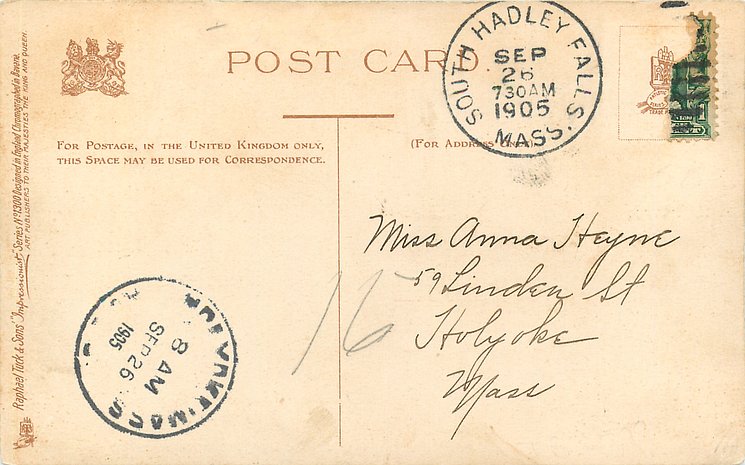 POST CARD.
FOR POSTAGE, IN THE UNITED KINGDOM ONLY,
THIS SPACE MAY BE USED FOR CORRESPONDENCE.
(FOR ADDRESS ONLY)
SOUTH HADLEY FALLS, MASS.
SEP
26
730AM
1905
Miss Anna Heyne
59 Linden St
Holyoke
Mass
16
HOLYOKE, MASS
8 AM
SEP 26
1905
Raphael Tuck & Sons' "Impressionist" Series No 1300 Designed in England Chromographed in Bavaria.
ART PUBLISHERS TO THEIR MAJESTIES THE KING AND QUEEN.